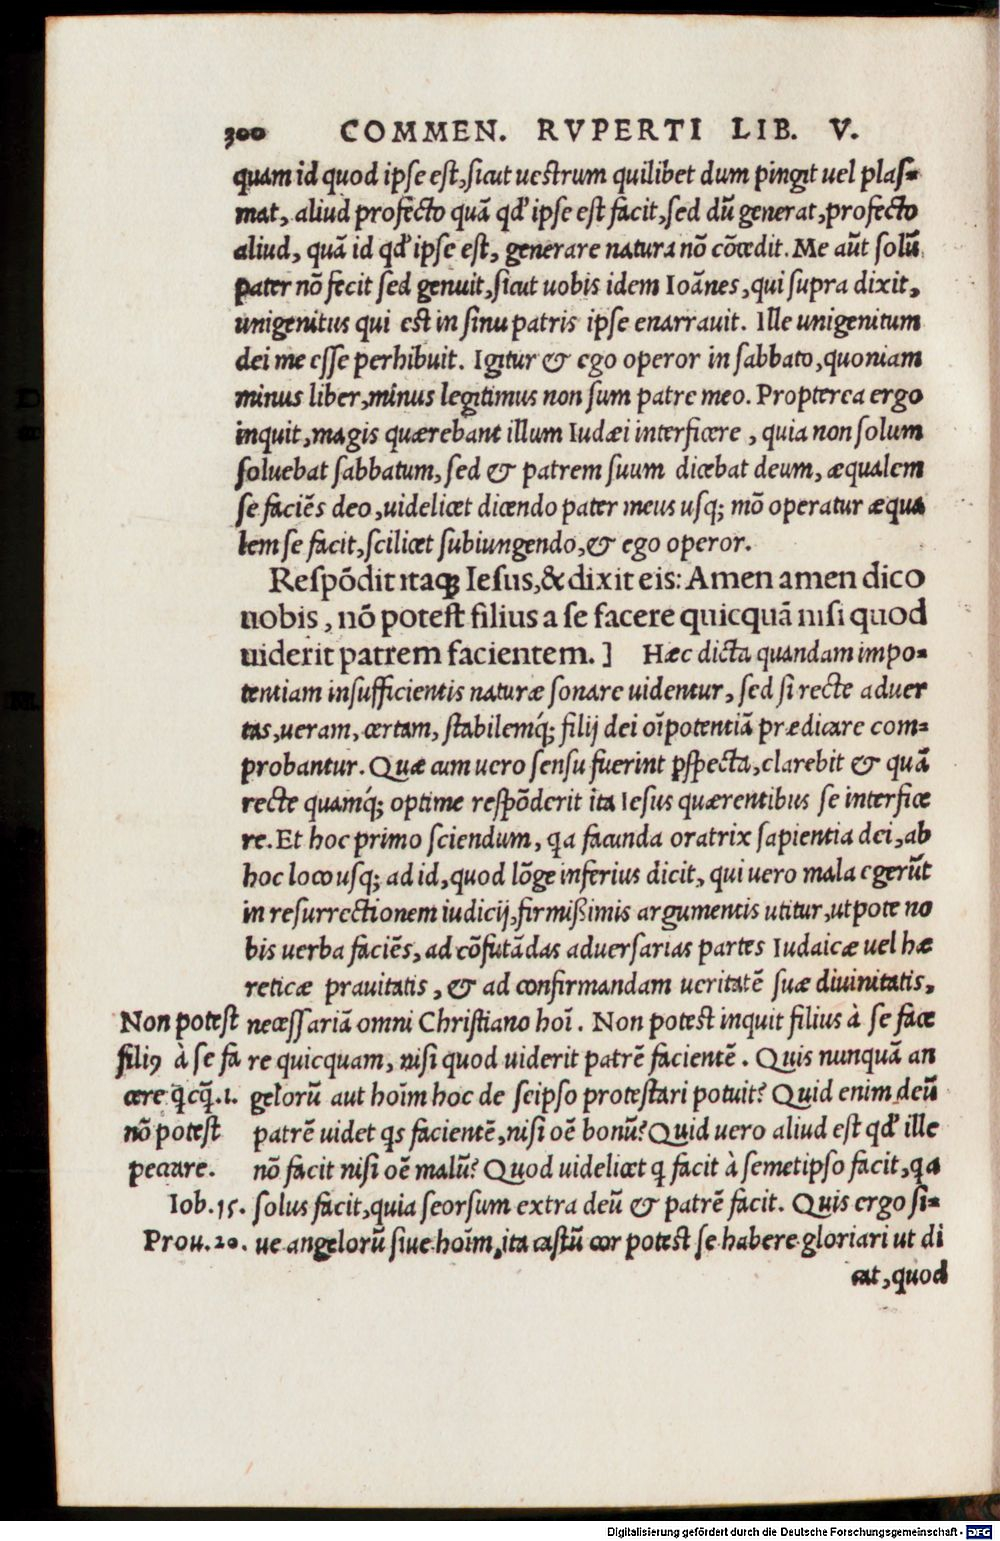 300 COMMEN. RVPERTI LIB. V.
quam id quod ipse est, sicut uestrum quilibet dum pingit uel plas-
mat, aliud profecto quã qd' ipse est facit, sed dũ generat, profecto
aliud, quã id qd' ipse est, generare natura nõ cõcedit. Me aũt solũ
pater nõ fecit sed genuit, sicut uobis idem Ioãnes, qui supra dixit,
unigenitus qui est in sinu patris ipse enarrauit. Ille unigenitum
dei me esse perhibuit. Igitur & ego operor in sabbato, quoniam
minus liber, minus legitimus non sum patre meo. Propterea ergo
inquit, magis quærebant illum Iudæi interficere, quia non solum
soluebat sabbatum, sed & patrem suum dicebat deum, æqualem
se faciẽs deo, uidelicet dicendo pater meus usq; mõ operatur æqua
lem se facit, scilicet subiungendo, & ego operor.
Respõdit itaq; Iesus, & dixit eis: Amen amen dico
uobis, nõ potest filius a se facere quicquã nisi quod
uiderit patrem facientem.] Hæc dicta quandam impo-
tentiam insufficientis naturæ sonare uidentur, sed si recte aduer
tas, ueram, certam, stabilemq́; filij dei oĩpotentiã prædicare com-
probantur. Quæ cum uero sensu fuerint pspecta, clarebit & quã
recte quamq́; optime respõderit ita Iesus quærentibus se interfice
re. Et hoc primo sciendum, qa facunda oratrix sapientia dei, ab
hoc loco usq; ad id, quod lõge inferius dicit, qui uero mala egerũt
in resurrectionem iudicij, firmißimis argumentis utitur, utpote no
bis uerba faciẽs, ad cõfutãdas aduersarias partes Iudaicæ uel hæ
reticæ prauitatis, & ad confirmandam ueritatẽ suæ diuinitatis,
necessariã omni Christiano hoĩ. Non potest inquit filius à se face
re quicquam, nisi quod uiderit patrẽ facientẽ. Quis nunquã an
gelorũ aut hoĩm hoc de seipso protestari potuit? Quid enim deũ
patrẽ uidet qs facientẽ, nisi oẽ bonũ? Quid uero aliud est qd' ille
nõ facit nisi oẽ malũ? Quod uidelicet q facit à semetipso facit, qa
solus facit, quia seorsum extra deũ & patrẽ facit. Quis ergo si-
ue angelorũ siue hoĩm, ita castũ cor potest se habere gloriari ut di
cat, quod
Non potest
filiꝰ à se fa
cere qcq̃. i.
nõ potest
peccare.
Iob. 15.
Prou. 20.
Digitalisierung gefördert durch die Deutsche Forschungsgemeinschaft - DFG